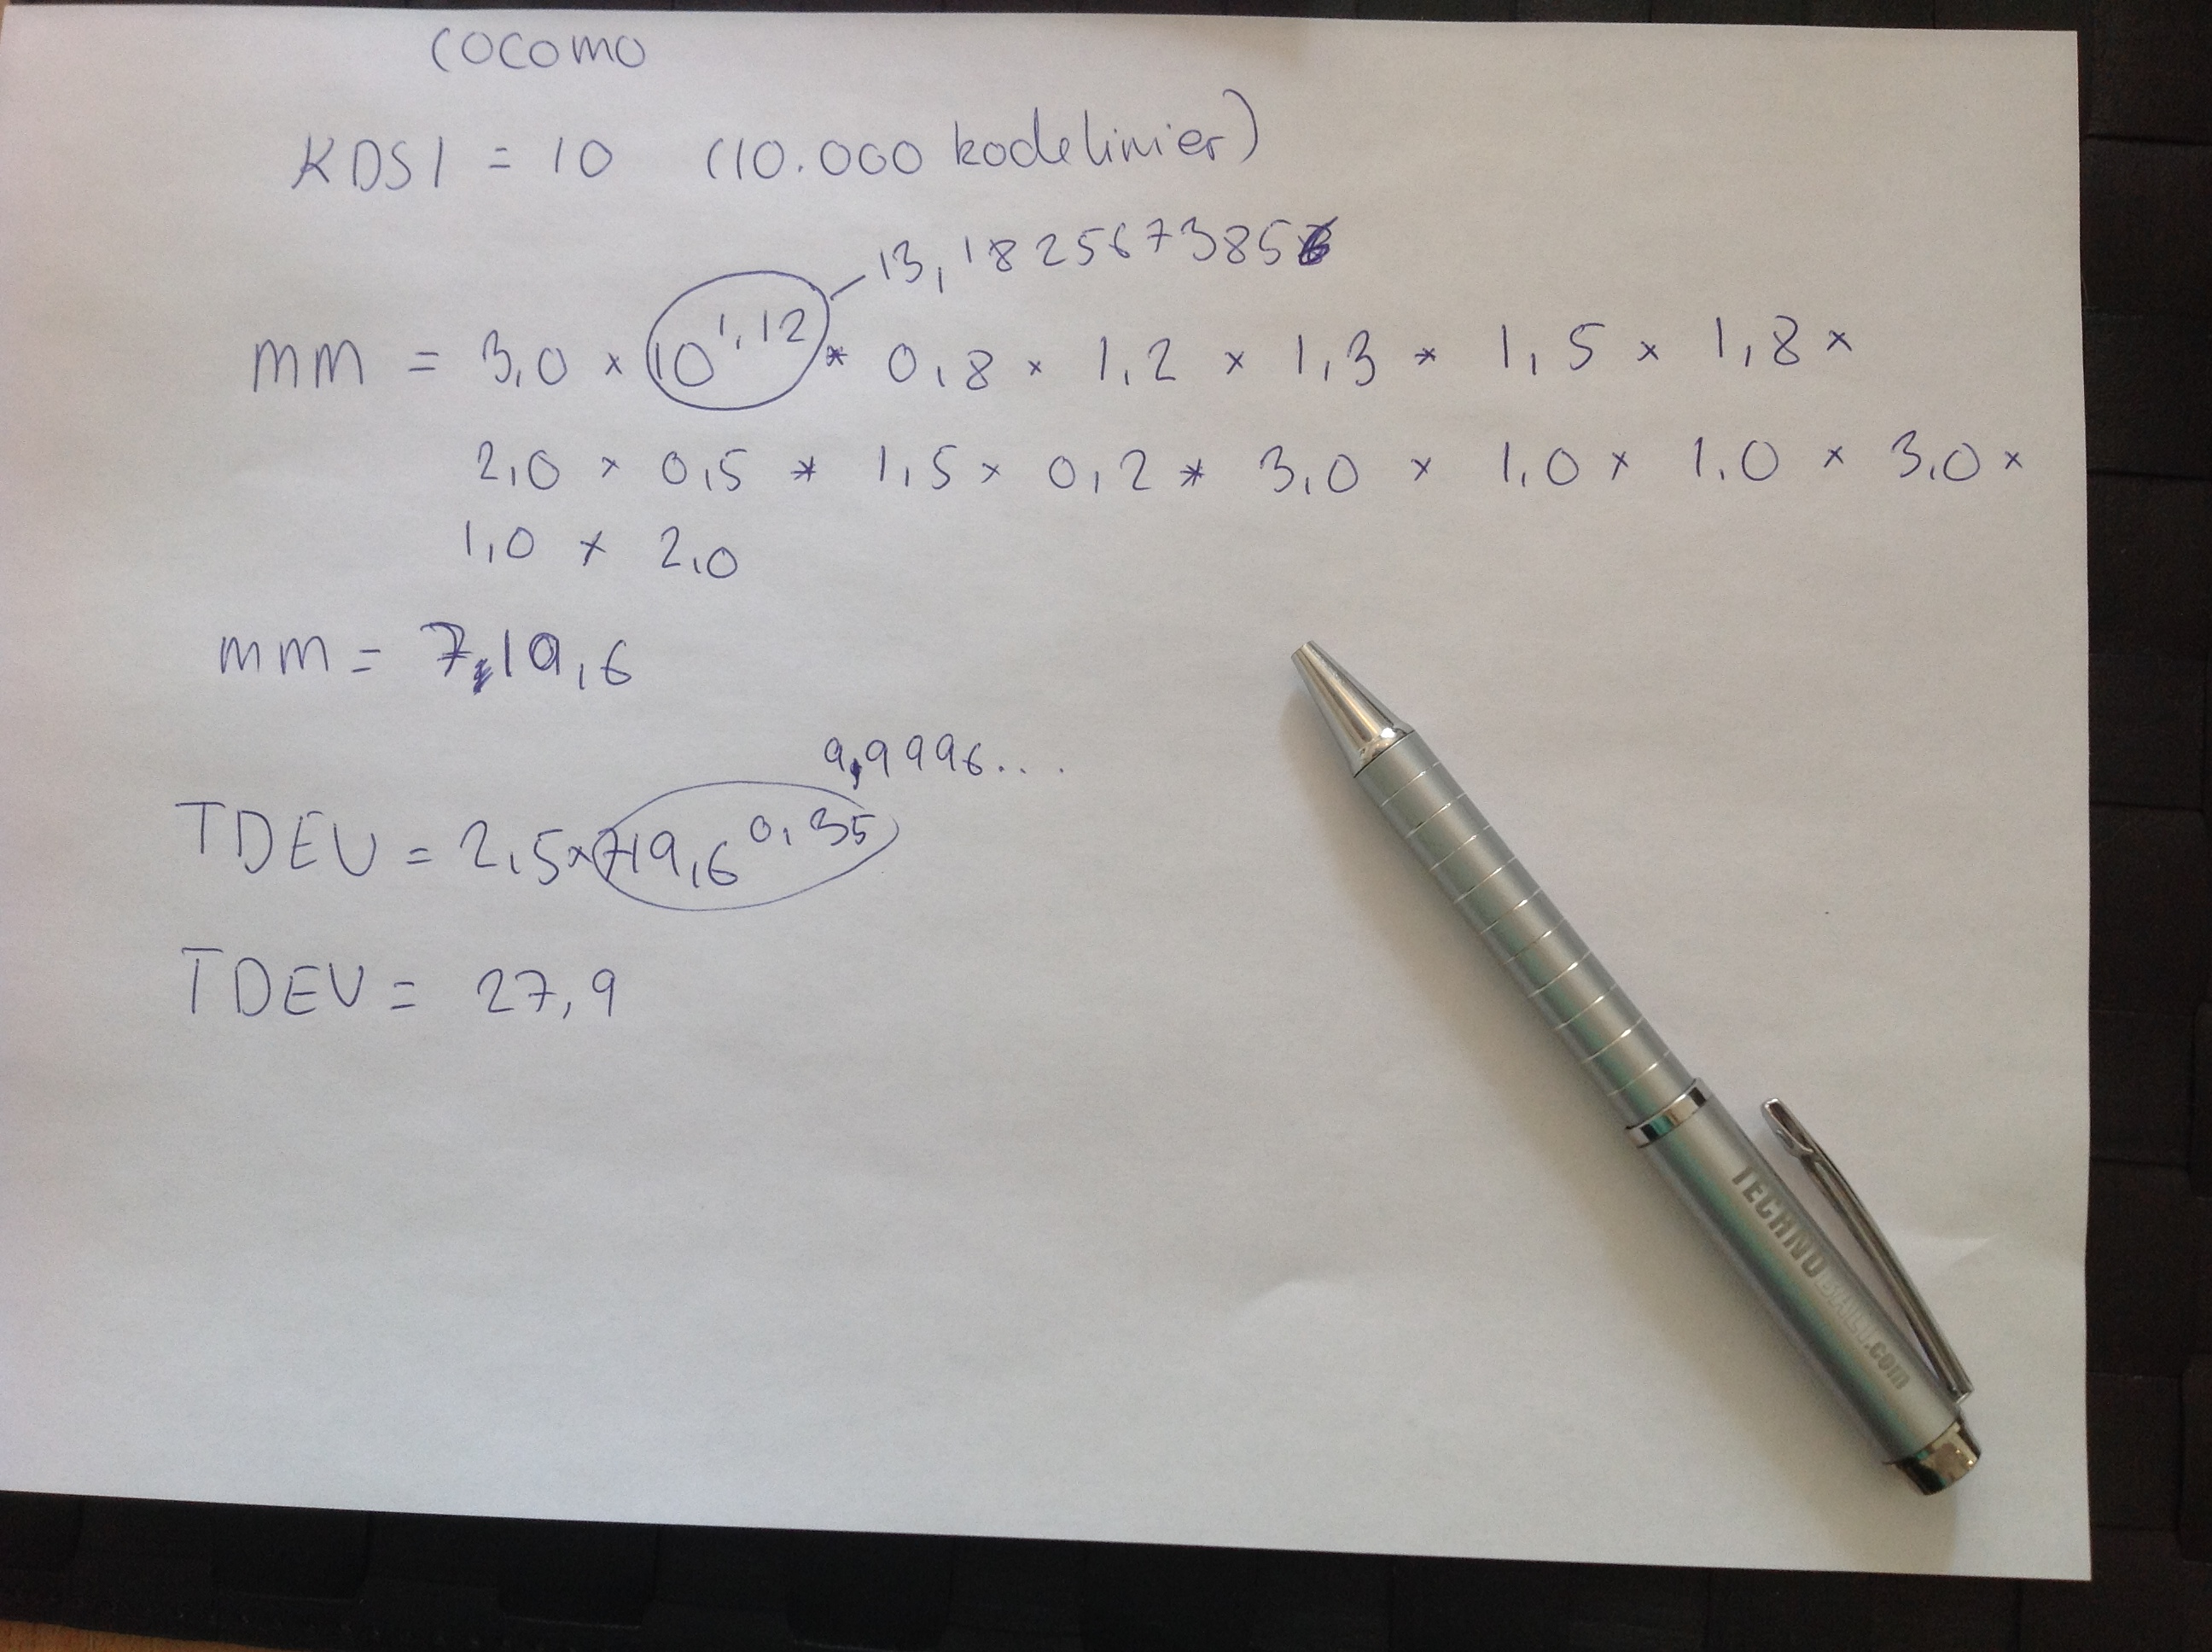 COCOMO
KDSI = 10 (10.000 kodelinier)
13,182567385
mm = 3,0 × 10^1,12 * 0,8 × 1,2 × 1,3 * 1,5 × 1,8 ×
2,0 × 0,5 * 1,5 × 0,2 * 3,0 × 1,0 × 1,0 × 3,0 ×
1,0 × 2,0
mm = 719,6
9,9996...
TDEV = 2,5×719,6^0,35
TDEV = 27,9
TECHNOBALL.com